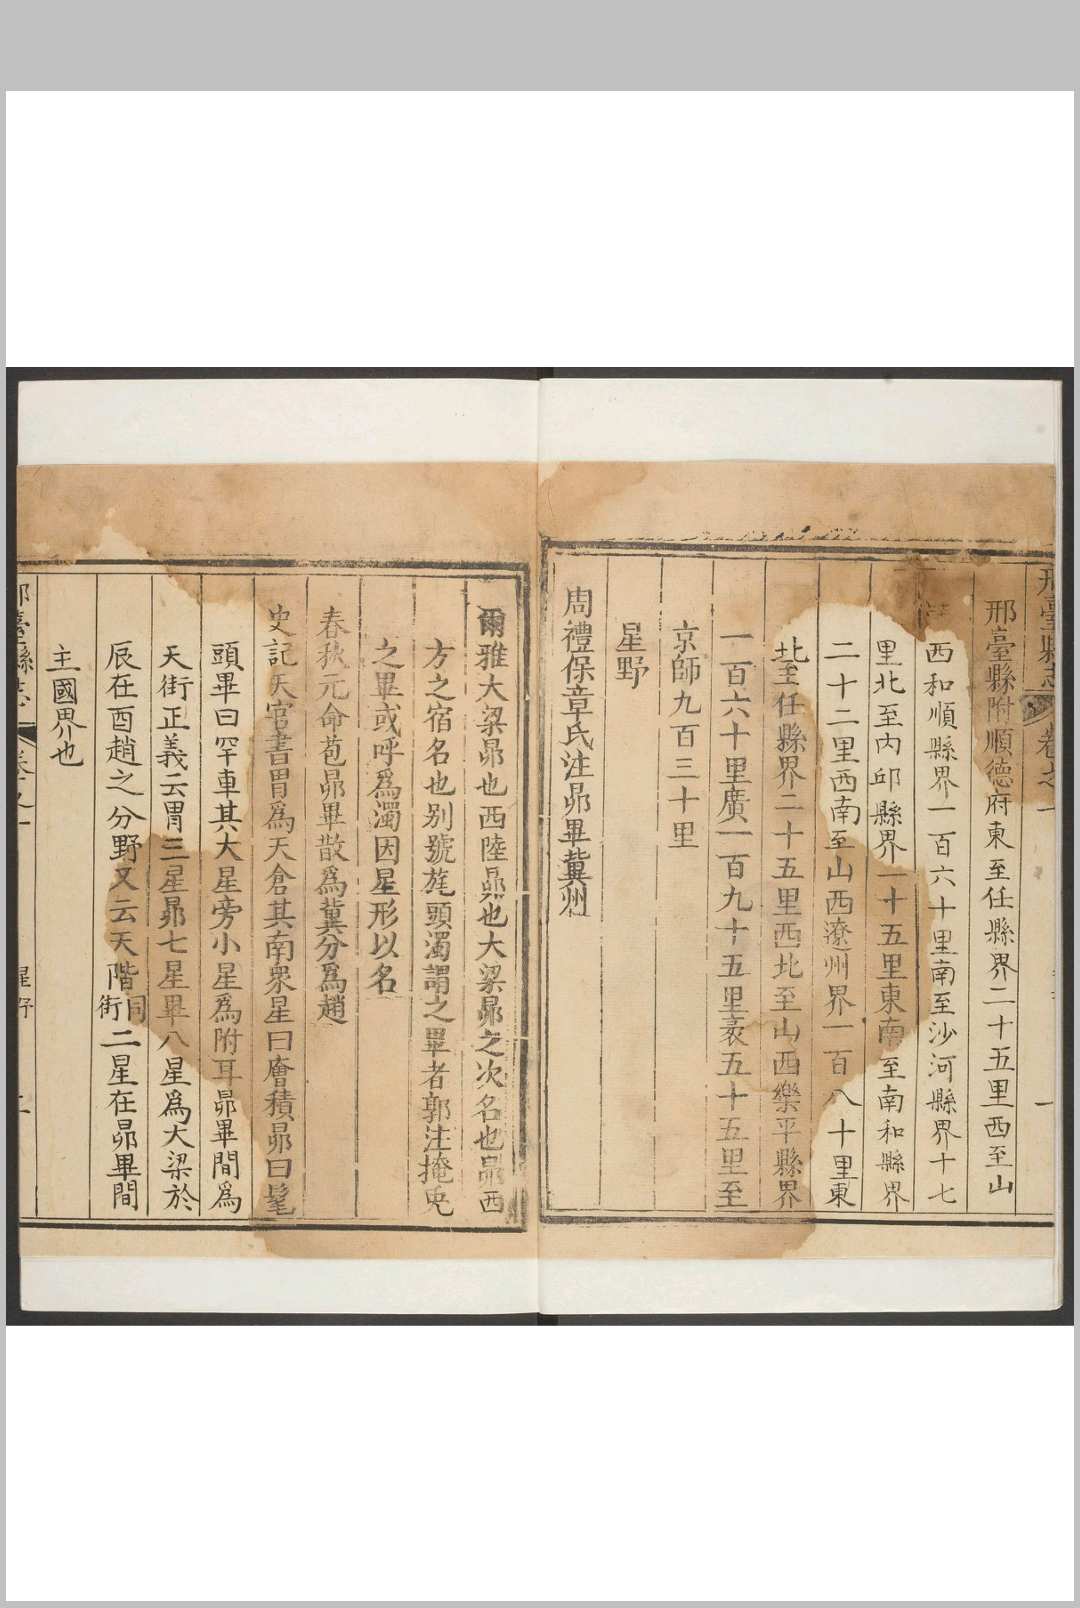 邢臺縣志 卷之一 一
邢臺縣附順德府東至任縣界二十五里西至山
西和順縣界一百六十里南至沙河縣界十七
里北至內邱縣界一十五里東南至南和縣界
二十二里西南至山西遼州界一百八十里東
北至任縣界二十五里西北至山西樂平縣界
一百六十里廣一百九十五里袤五十五里至
京師九百三十里
星野
周禮保章氏注昴畢冀州
爾雅大梁昴也西陸昴也大梁昴之次名也昴西
方之宿名也别號旄頭濁謂之畢者郭注掩兎
之畢或呼爲濁因星形以名
春秋元命苞昴畢散爲冀分爲趙
史記天官書胃爲天倉其南衆星曰廥積昴曰髦
頭畢曰罕車其大星旁小星爲附耳昴畢間爲
天街正義云胃三星昴七星畢八星爲大梁於
辰在酉趙之分野又云天階同街二星在昴畢間
主國界也
邢臺縣志 卷之一 星野 二